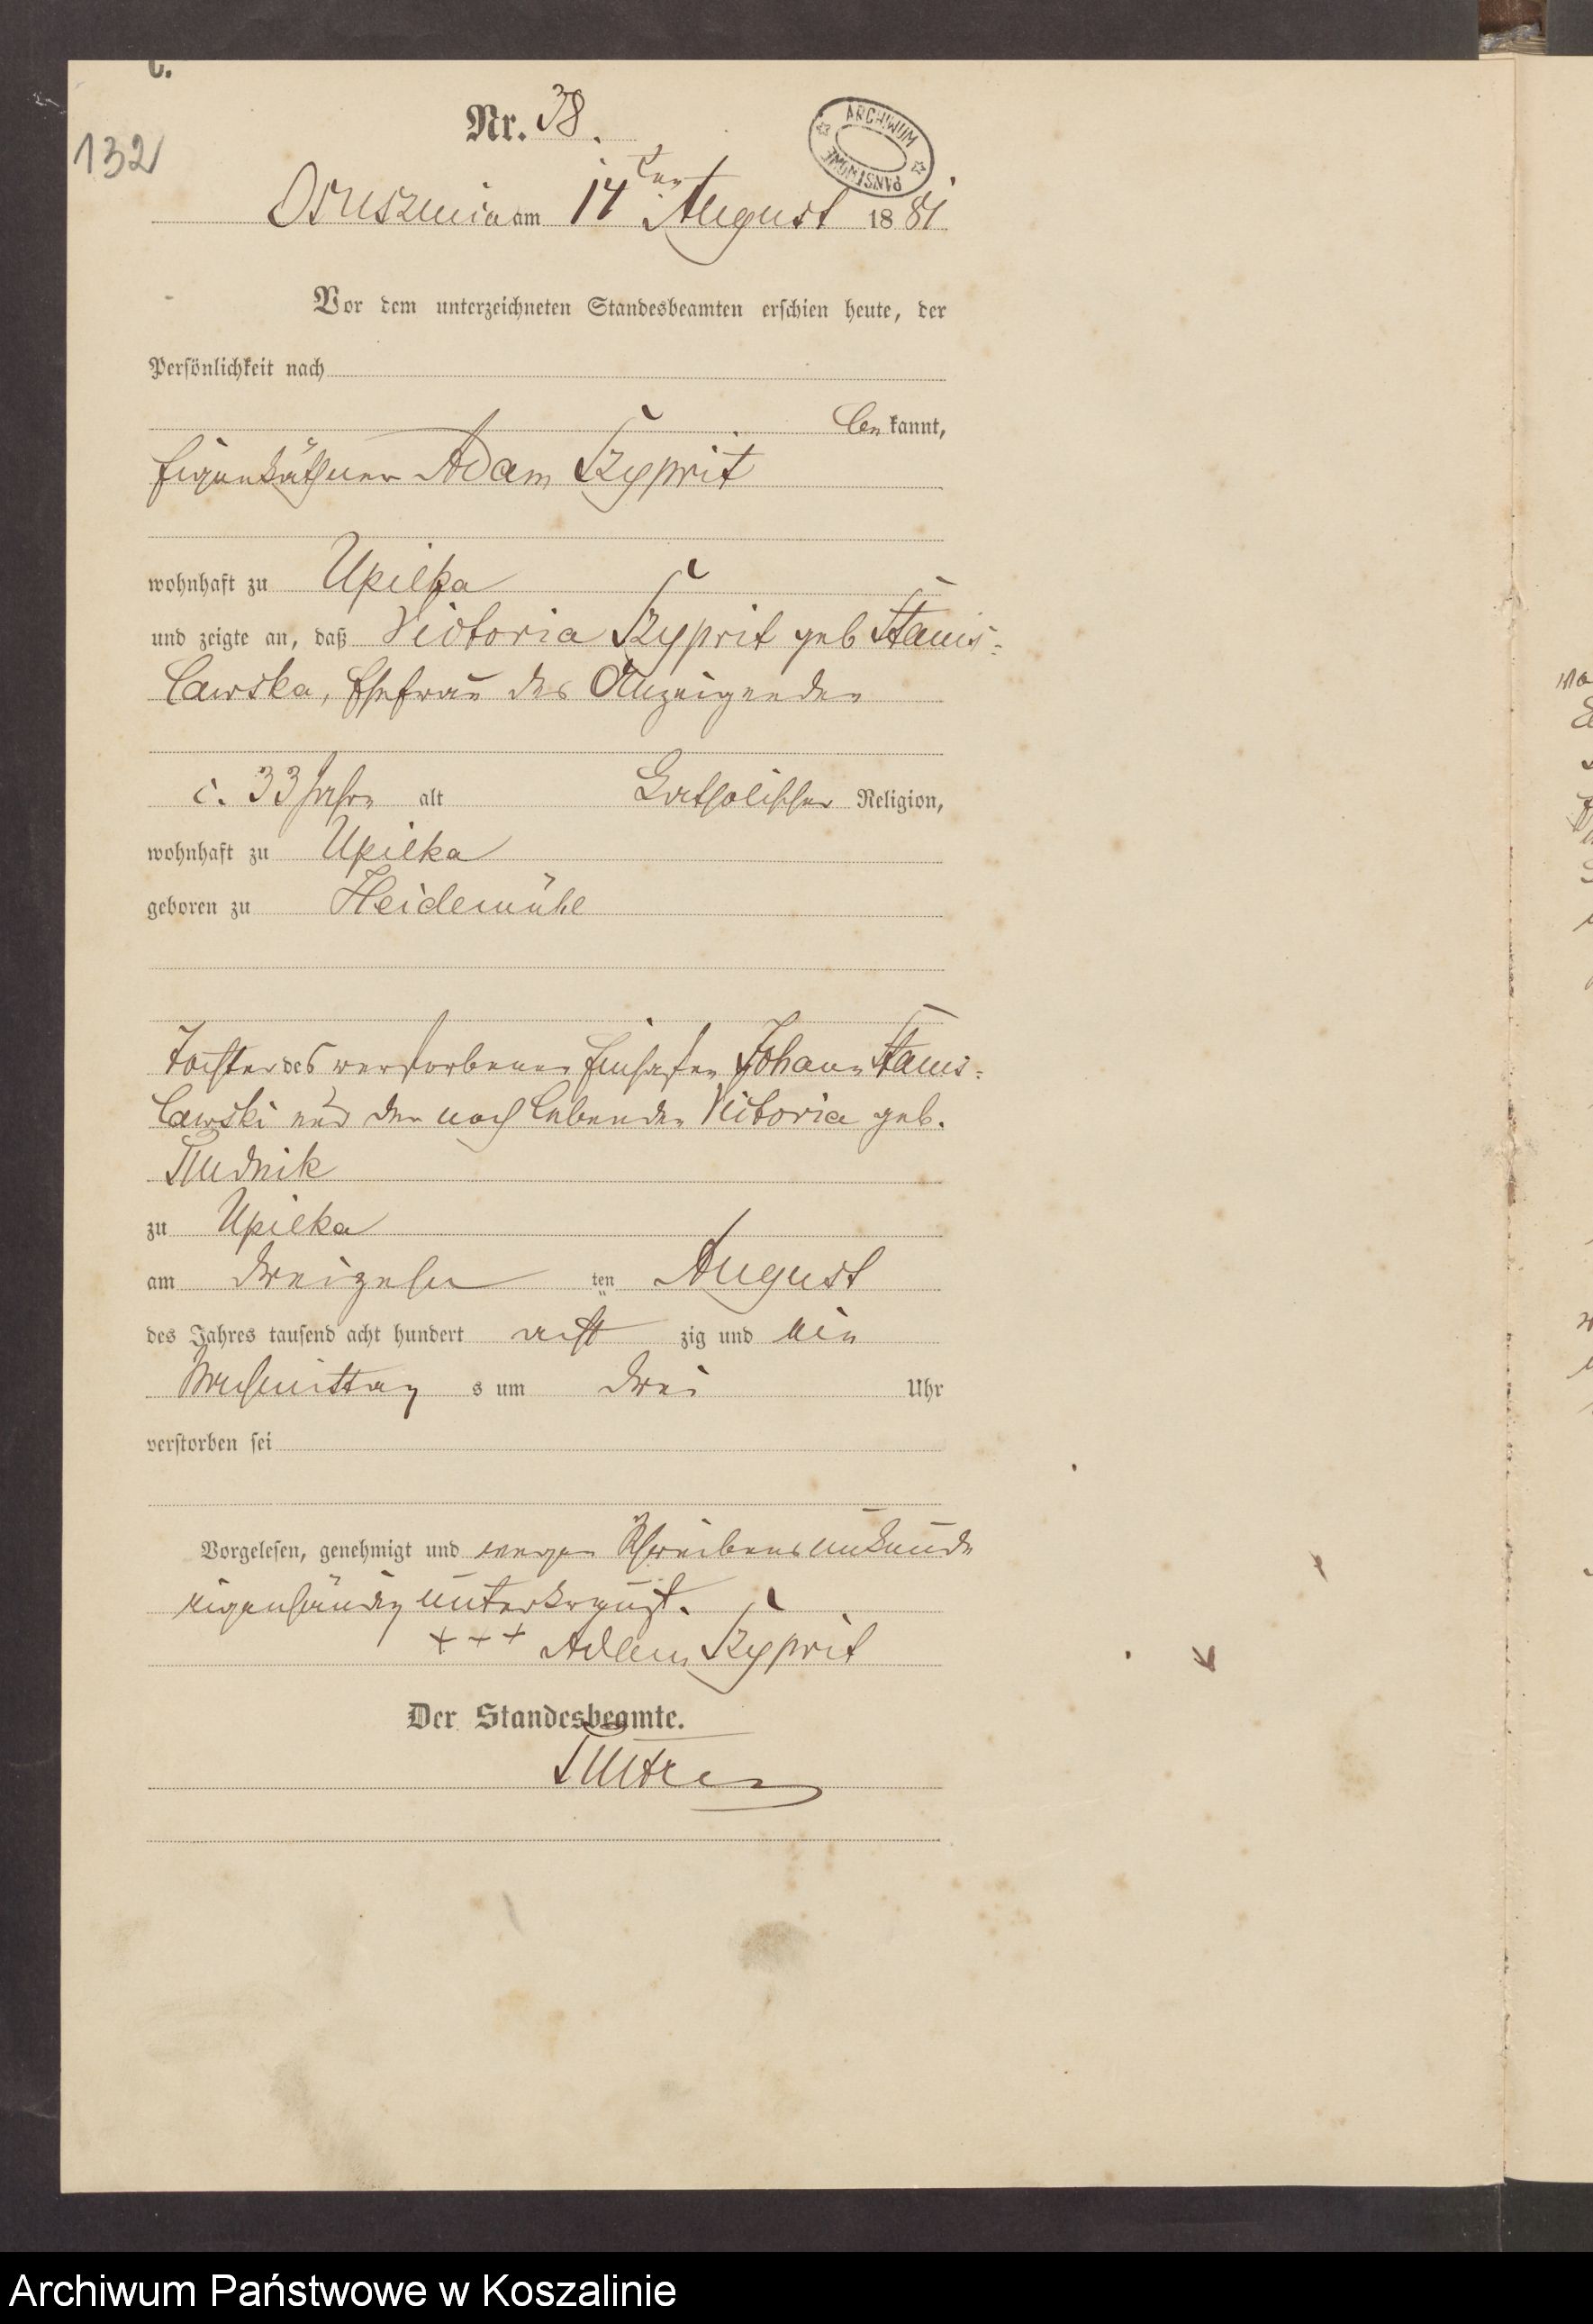 C.
132
Nr. 38.
ARCHIWUM PAŃSTWOWE
Osusznica am 14ten August 1881
Vor dem unterzeichneten Standesbeamten erschien heute, der
Persönlichkeit nach
be kannt,
Eigenkäthner Adam Szyprit
wohnhaft zu Upilka
und zeigte an, daß Victoria Szyprit geb Stanis-
lawska, Ehefrau des Anzeigenden
c. 33 Jahre alt katholischer Religion,
wohnhaft zu Upilka
geboren zu Heidemühl
Tochter des verstorbenen Einsassen Johann Stanis-
lawski und der noch lebenden Victoria geb.
Rudnik
zu Upilka
am dreizehn ten August
des Jahres tausend acht hundert acht zig und ein
Nachmittag s um drei Uhr
verstorben sei
Vorgelesen, genehmigt und wegen Schreibensunkunde
eigenhändig unterkreuzt.
+++ Adam Szyprit
Der Standesbeamte.
Archiwum Państwowe w Koszalinie